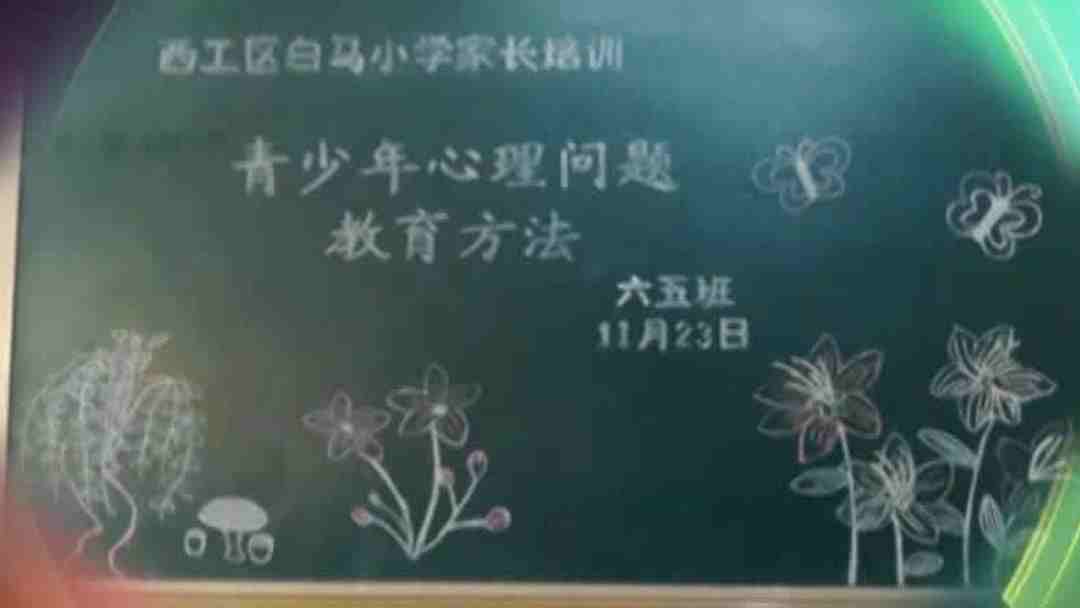 西工区白马小学家长培训
青少年心理问题
教育方法
六五班
11月23日